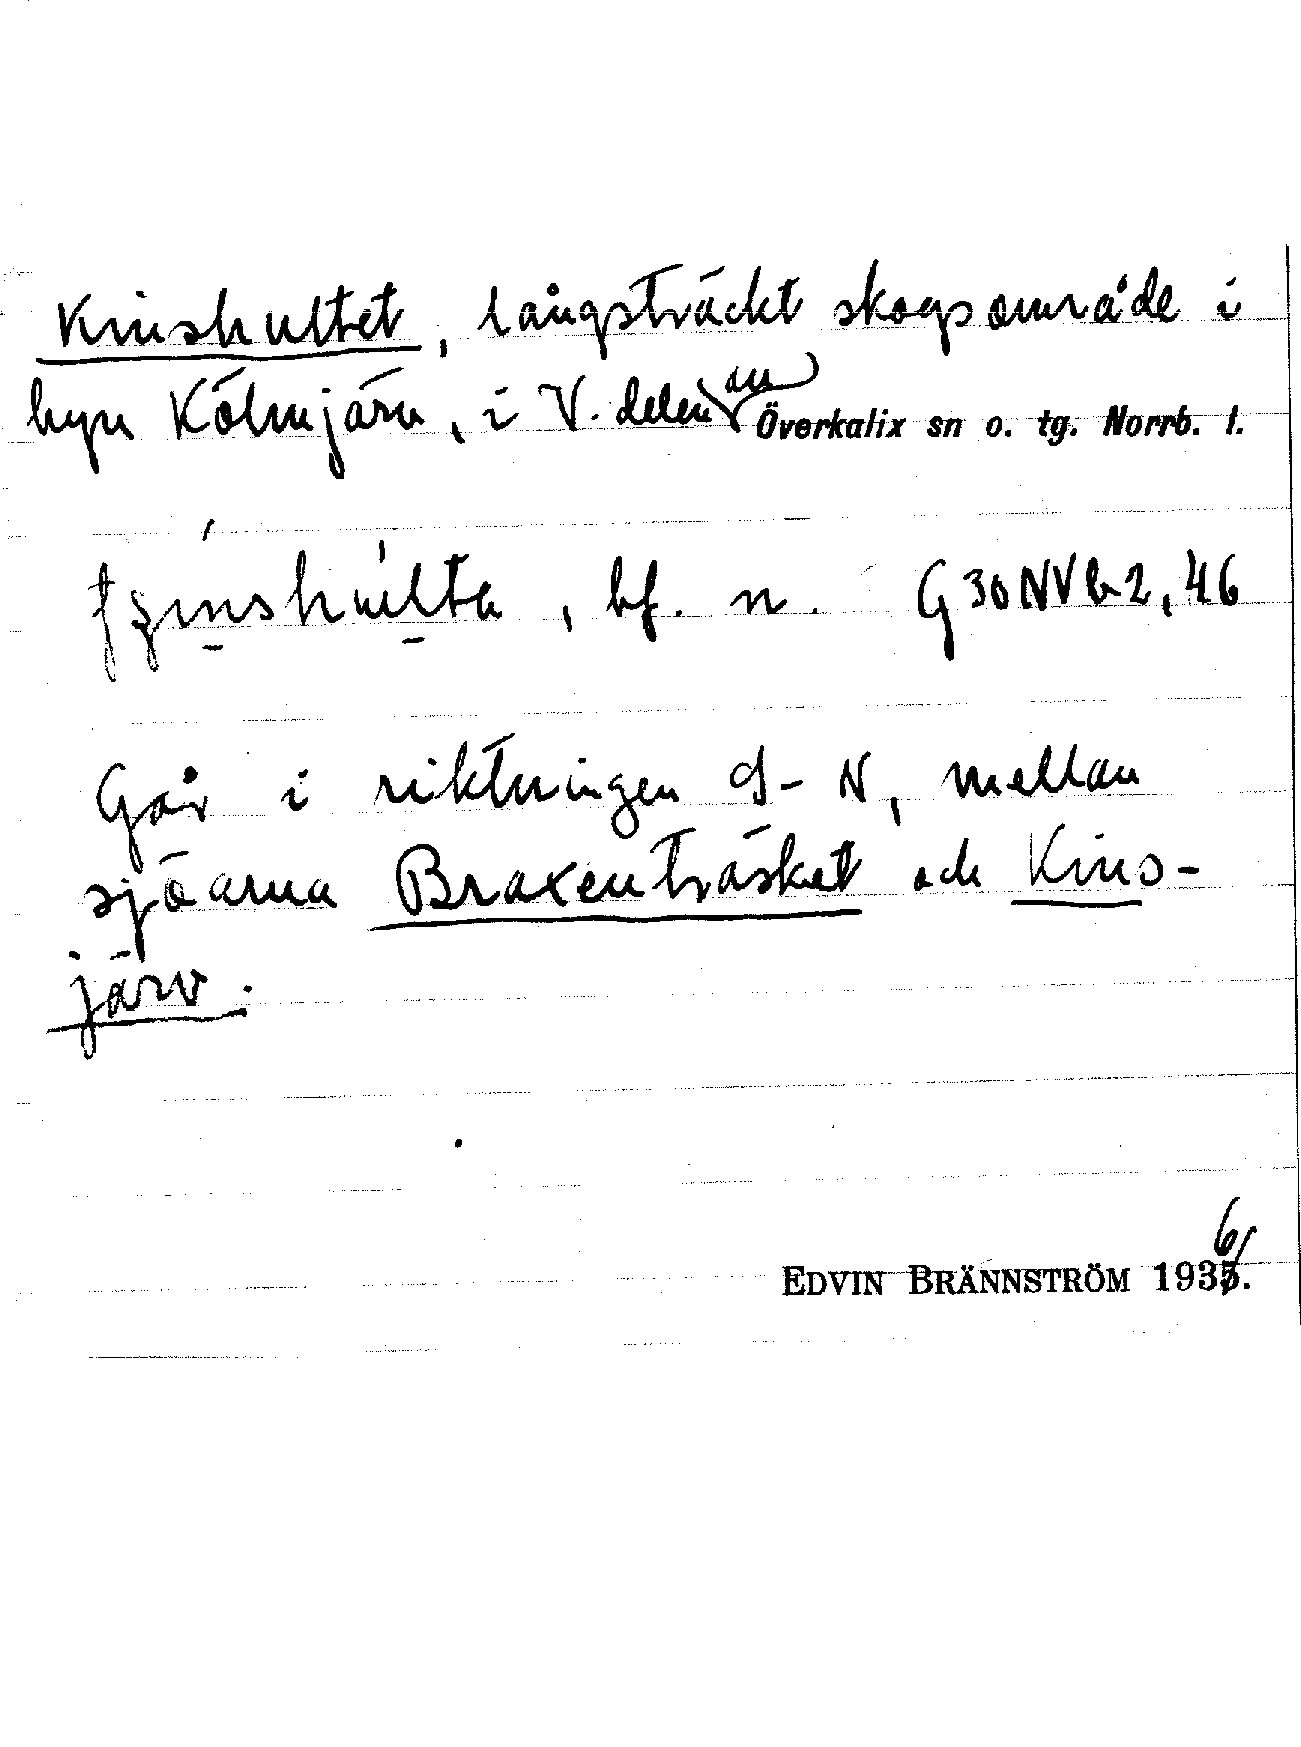 Kinshultet, långsträckt skogsområde i
byn Kölmjärv, i V. delen av Överkalix sn o. tg. Norrb. l.
bf. n. G30NVb2, 46
Går i riktningen S-N, mellan
sjöarna Braxenträsket och Kins-
järv.
EDVIN BRÄNNSTRÖM 1936.